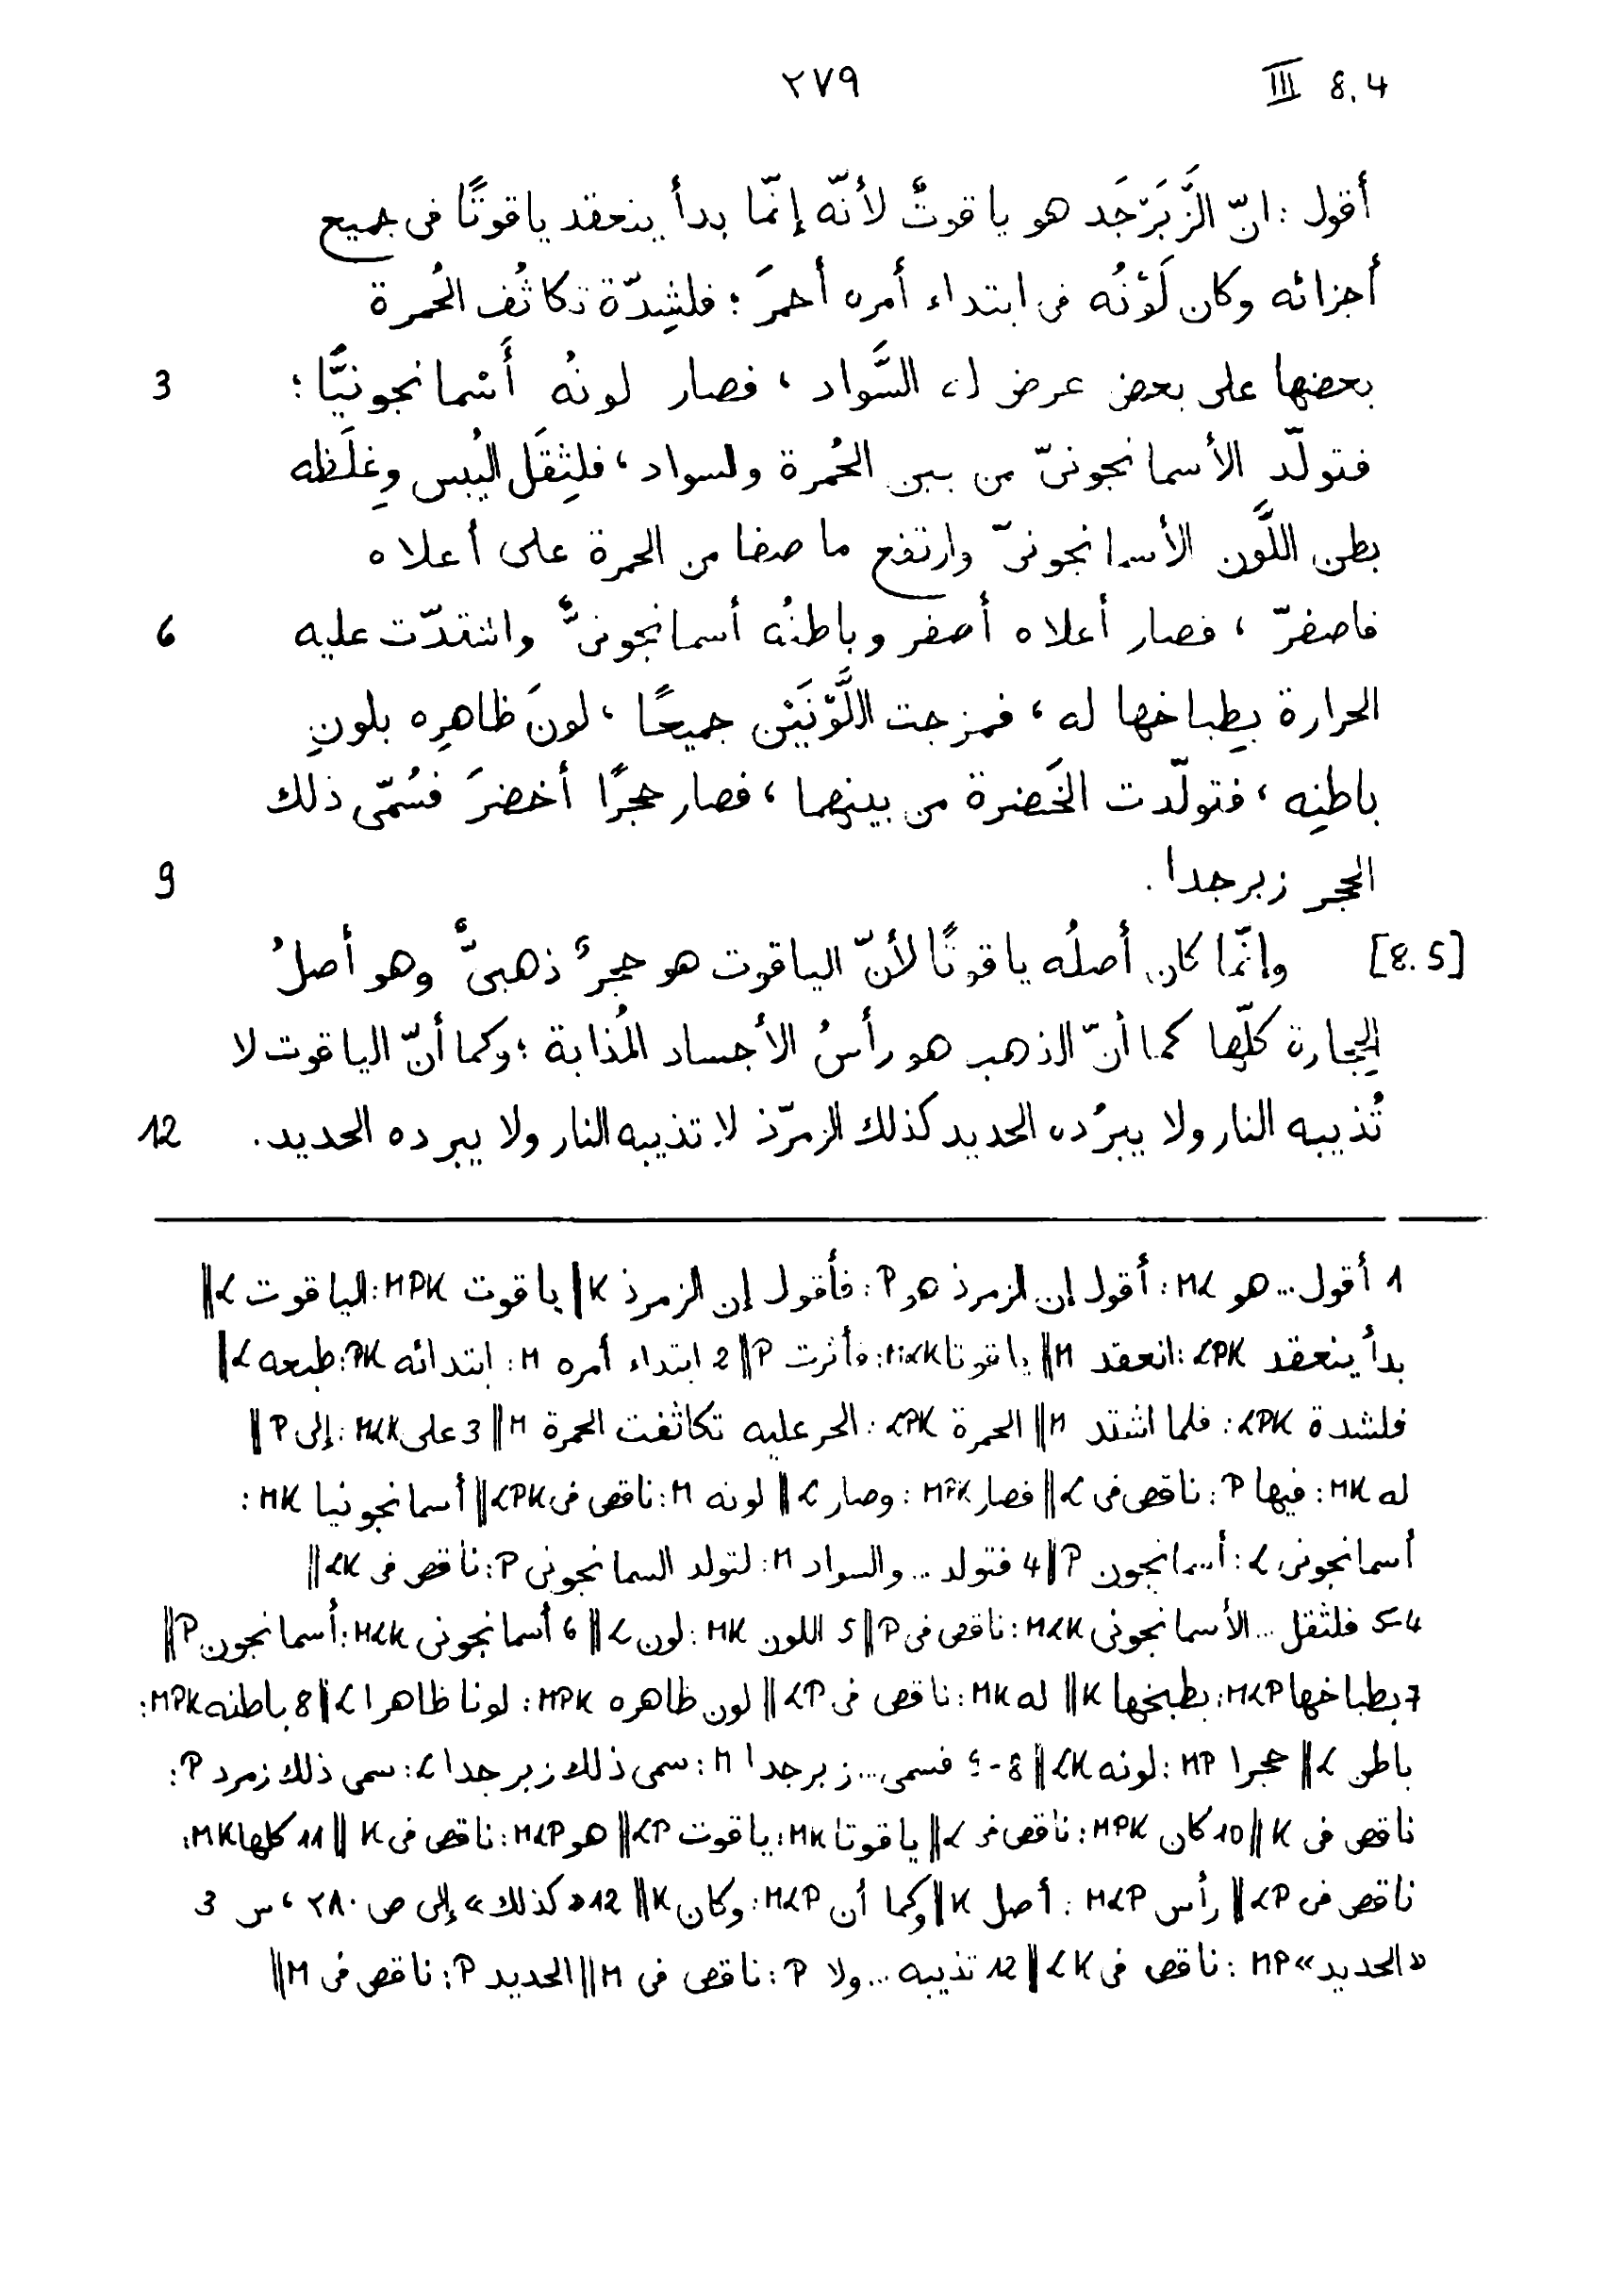 ٢٧٩ III 8.4
أقول : انّ الزَّبَرْجَد هو ياقوتٌ لأنّه إنّما بدأ ينعقد ياقوتًا فى جميع
أجزائه وكان لَوْنُه فى ابتداء أمره أحمرَ ؛ فلشِدّة تكاثُف الحُمرة
3 بعضها على بعض عرض له السَّواد ، فصار لونُه أَسْمانجونيًّا ؛
فتولّد الأسمانجونىّ من بين الحُمرة والسواد ، فلِثِقَل اليُبس وغِلَظه
بطن اللَّون الأسمانجونىّ وارتفع ما صفا من الحمرة على أعلاه
6 فاصفرّ ، فصار أعلاه أصفر وباطنُه أسمانجونىٌّ واشتدّت عليه
الحرارة بطِباخها له ، فمزجت اللَّوْنَيْن جميعًا ، لونَ ظاهرِه بلونِ
باطنِه ، فتولّدت الخَضرة من بينهما ، فصار حجرًا أخضرَ فسُمّى ذلك
9 الحجر زبرجدا .
[8.5] وإنّما كان أصلُه ياقوتًا لأنّ الياقوت هو حجرٌ ذهبىٌّ وهو أصلُ
الحِجارة كلّها كما أنّ الذهب هو رأسُ الأجساد المُذابة ؛ وكما أنّ الياقوت لا
12 تُذيبه النار ولا يبرُده الحديد كذلك الزمرّذ لا تذيبه النار ولا يبرده الحديد .
1 أقول ... هو ML : أقول إن الزمرذ هو P : فأقول إن الزمرذ K || ياقوت MPK : الياقوت L ||
بدأ ينعقد LPK : انعقد M || ياقوتا MLK : فأثرت P || 2 ابتداء أمره M : ابتدائه PK : طبعه L ||
فلشدة LPK : فلما اشتد M || الحمرة LPK : الحر عليه تكاثفت الحمرة M || 3 على MLK : إلى P ||
له MK : فيها P : ناقص فى L || فصار MPK : وصار L || لونه M : ناقص فى LPK || أسمانجونيا MK :
أسمانجونى L : أسمانجون P || 4 فتولد ... والسواد M : لتولد السمانجونى P : ناقص فى LK ||
4-5 فلثقل ... الأسمانجونى MLK : ناقص فى P || 5 اللون MK : لون L || 6 أسمانجونى MLK : أسمانجون P ||
7 بطباخها MLP : بطبخها K || له MK : ناقص فى LP || لون ظاهره MPK : لونا ظاهرا L || 8 باطنه MPK :
باطن L || حجرا MP : لونه LK || 8-9 فسمى ... زبرجدا M : سمى ذلك زبرجدا L : سمى ذلك زمرد P :
ناقص فى K || 10 كان MPK : ناقص فى L || ياقوتا MK : ياقوت LP || هو MLP : ناقص فى K || 11 كلها MK :
ناقص فى LP || رأس MLP : أصل K || وكما أن MLP : وكان K || 12 «كذلك» إلى ص ٢٨٠ ، س 3
«الحديد» MP : ناقص فى LK || 12 تذيبه ... ولا P : ناقص فى M || الحديد P : ناقص فى M ||